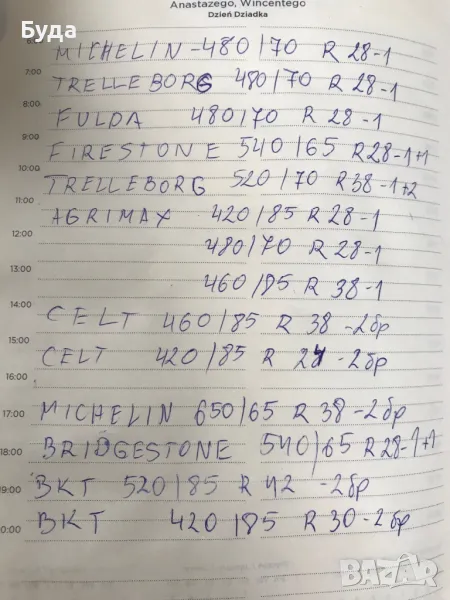 Буда
Anastazego, Wincentego
Dzień Dziadka
MICHELIN-480/70 R 28-1
7:00
TRELLEBORG 480/70 R 28-1
8:00
FULDA 480/70 R 28-1
9:00
FIRESTONE 540/65 R28-1+1
10:00
TRELLEBORG 520/70 R38-1+2
11:00
AGRIMAX 420/85 R 28-1
12:00
480/70 R 28-1
13:00
460/85 R 38-1
14:00
CELT 460/85 R 38-2бр
15:00
CELT 420/85 R 24-2бр
16:00
17:00 MICHELIN 650/65 R 38-2бр
18:00 BRIDGESTONE 540/65 R28-1+1
19:00 BKT 520/85 R 42 -2бр
20:00 BKT 420/85 R 30-2бр
BAZAR